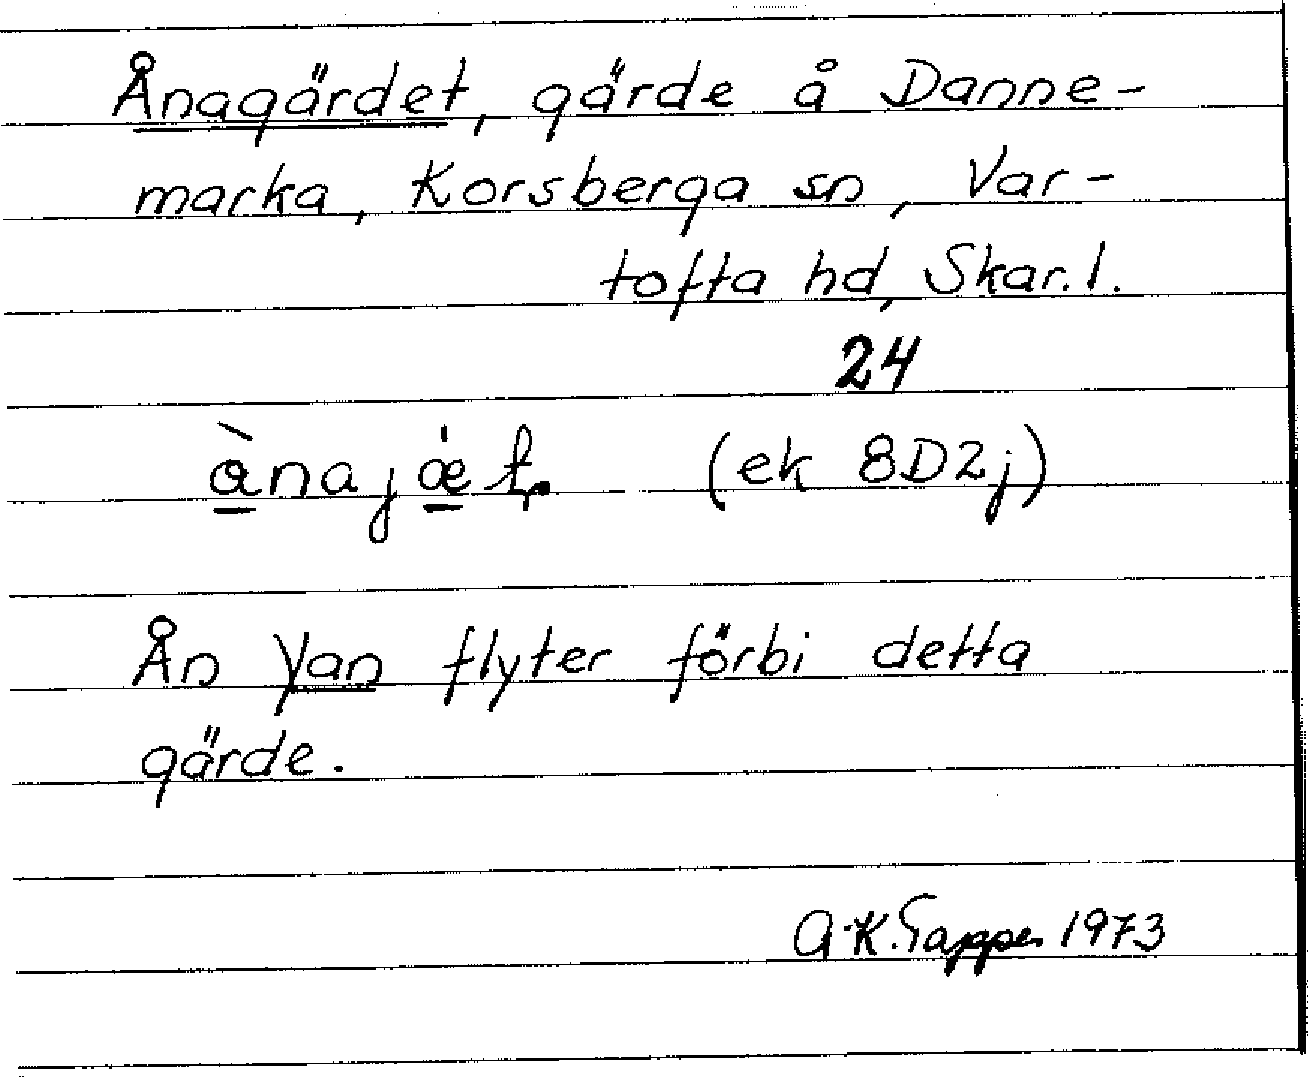 Ånagärdet, gärde å Danne-
marka, Korsberga sn, Var-
tofta hd, Skar. l.
24
(ek 8D2j)
Ån Yan flyter förbi detta
gärde.
A-K. 1973